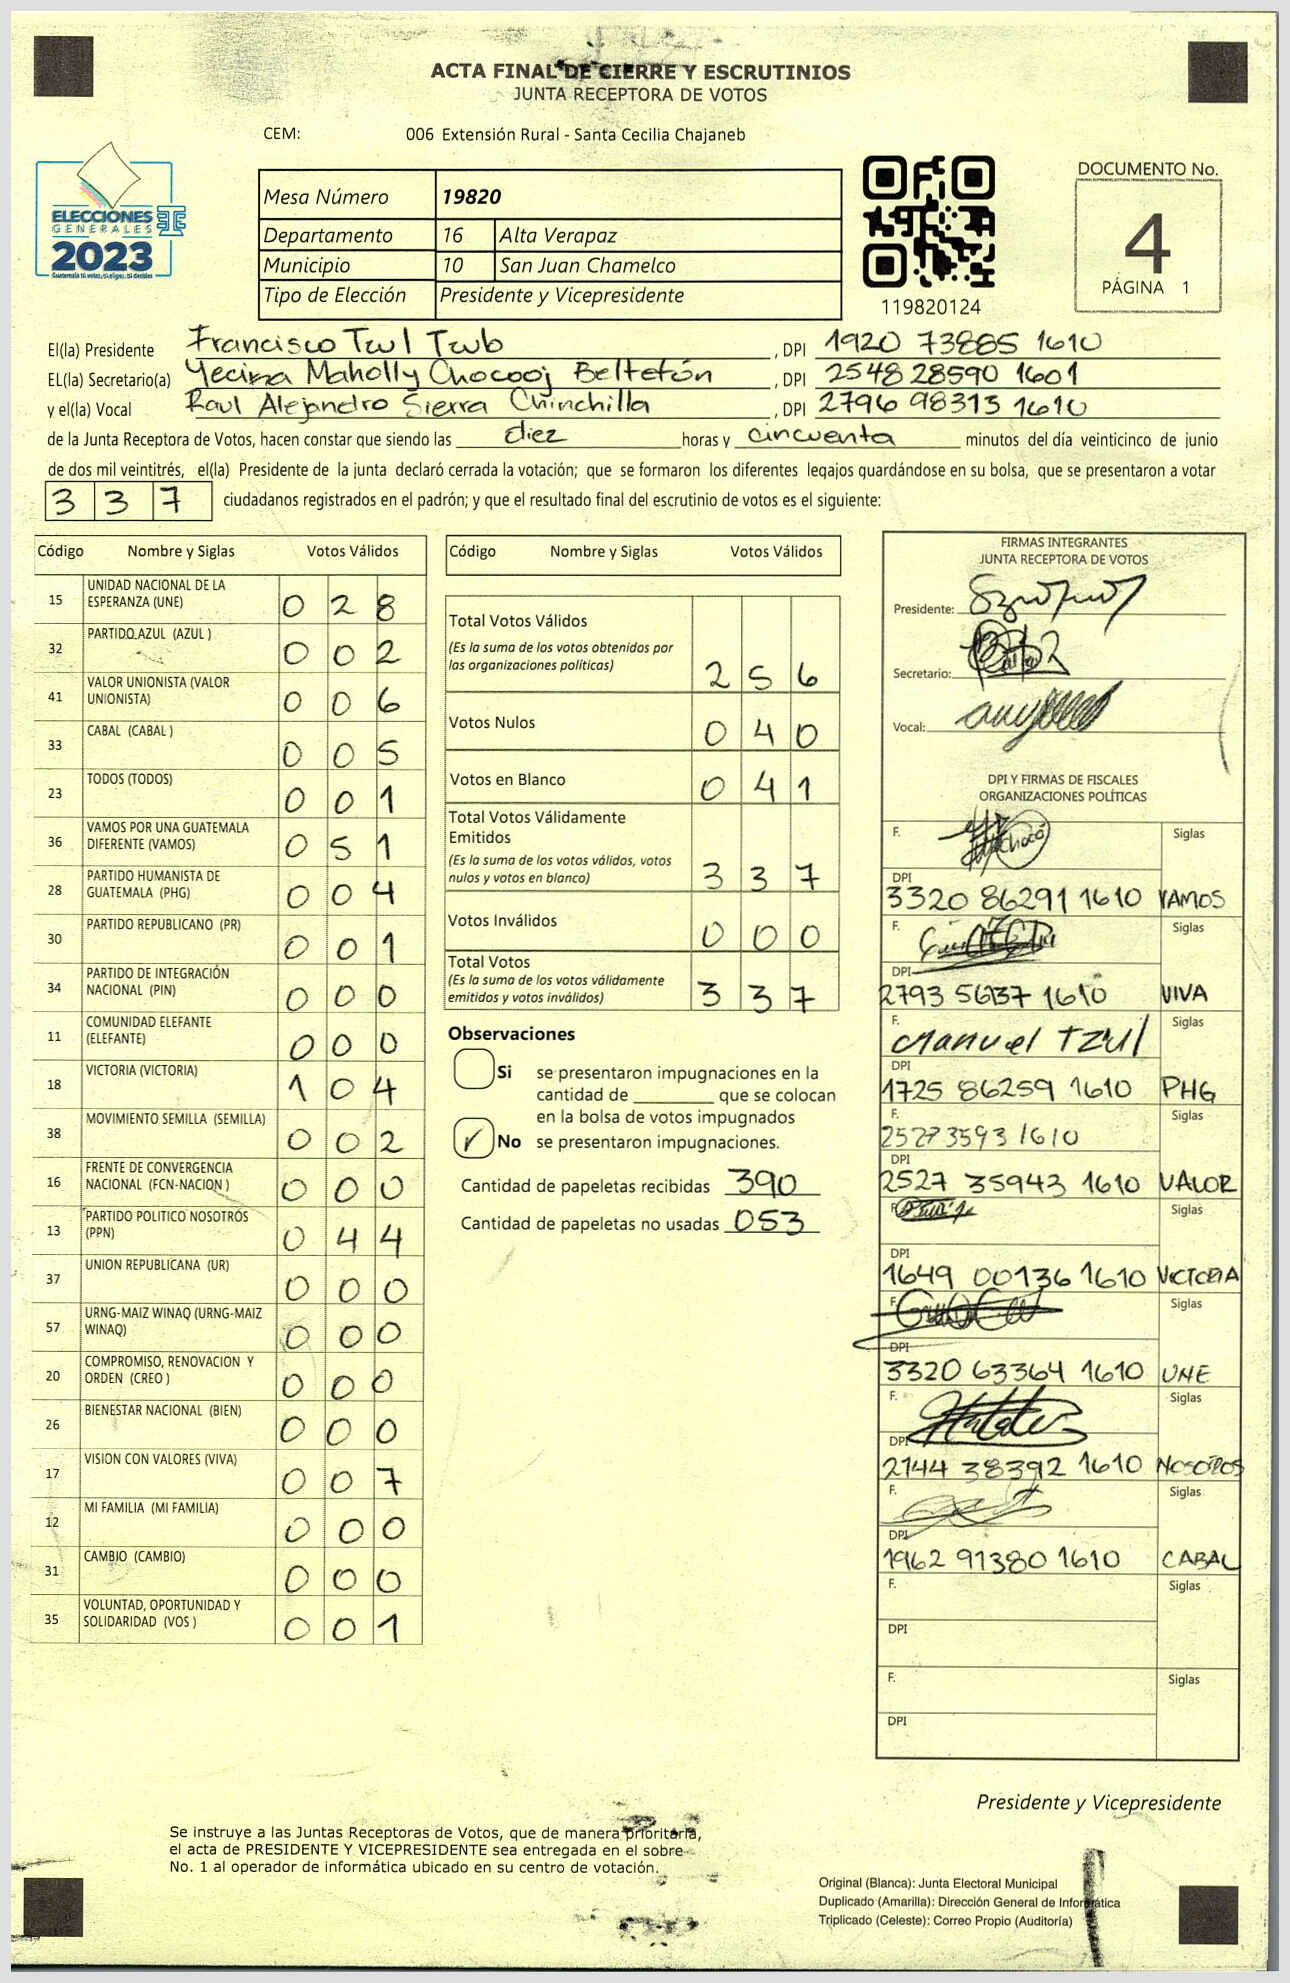 ACTA FINAL DE CIERRE Y ESCRUTINIOS
JUNTA RECEPTORA DE VOTOS
CEM: 006 Extensión Rural - Santa Cecilia Chajaneb
ELECCIONES
GENERALES
2023
Mesa Número 19820
Departamento 16 Alta Verapaz
Municipio 10 San Juan Chamelco
Tipo de Elección Presidente y Vicepresidente
119820124
DOCUMENTO No.
4
PÁGINA 1
El(la) Presidente Francisco Tzul Tzub, DPI 1920 73885 1610
EL(la) Secretario(a) Yecina Maholly Chocooj Beltetón, DPI 2548 28590 1601
y el(la) Vocal Raul Alejandro Sierra Chinchilla, DPI 2796 98313 1610
de la Junta Receptora de Votos, hacen constar que siendo las diez horas y cincuenta minutos del día veinticinco de junio
de dos mil veintitrés, el(la) Presidente de la junta declaró cerrada la votación; que se formaron los diferentes legajos guardándose en su bolsa, que se presentaron a votar
337 ciudadanos registrados en el padrón; y que el resultado final del escrutinio de votos es el siguiente:
Código Nombre y Siglas Votos Válidos
15 UNIDAD NACIONAL DE LA ESPERANZA (UNE) 028
32 PARTIDO AZUL (AZUL ) 002
41 VALOR UNIONISTA (VALOR UNIONISTA) 006
33 CABAL (CABAL ) 005
23 TODOS (TODOS) 001
36 VAMOS POR UNA GUATEMALA DIFERENTE (VAMOS) 051
28 PARTIDO HUMANISTA DE GUATEMALA (PHG) 004
30 PARTIDO REPUBLICANO (PR) 001
34 PARTIDO DE INTEGRACIÓN NACIONAL (PIN) 000
11 COMUNIDAD ELEFANTE (ELEFANTE) 000
18 VICTORIA (VICTORIA) 104
38 MOVIMIENTO SEMILLA (SEMILLA) 002
16 FRENTE DE CONVERGENCIA NACIONAL (FCN-NACION ) 000
13 PARTIDO POLITICO NOSOTROS (PPN) 044
37 UNION REPUBLICANA (UR) 000
57 URNG-MAIZ WINAQ (URNG-MAIZ WINAQ) 000
20 COMPROMISO, RENOVACION Y ORDEN (CREO ) 000
26 BIENESTAR NACIONAL (BIEN) 000
17 VISION CON VALORES (VIVA) 007
12 MI FAMILIA (MI FAMILIA) 000
31 CAMBIO (CAMBIO) 000
35 VOLUNTAD, OPORTUNIDAD Y SOLIDARIDAD (VOS ) 001
Código Nombre y Siglas Votos Válidos
Total Votos Válidos
(Es la suma de los votos obtenidos por
las organizaciones políticas) 256
Votos Nulos 040
Votos en Blanco 041
Total Votos Válidamente
Emitidos
(Es la suma de los votos válidos, votos
nulos y votos en blanco) 337
Votos Inválidos 000
Total Votos
(Es la suma de los votos válidamente
emitidos y votos inválidos) 337
Observaciones
Si se presentaron impugnaciones en la
cantidad de ________ que se colocan
en la bolsa de votos impugnados
✓ No se presentaron impugnaciones.
Cantidad de papeletas recibidas 390
Cantidad de papeletas no usadas 053
FIRMAS INTEGRANTES
JUNTA RECEPTORA DE VOTOS
Presidente:
Secretario:
Vocal:
DPI Y FIRMAS DE FISCALES
ORGANIZACIONES POLÍTICAS
F. Siglas
DPI
3320 86291 1610 VAMOS
F. Siglas
DPI
2793 56137 1610 VIVA
F. Manuel Tzul Siglas
DPI
1725 86259 1610 PHG
F. 25273593 1610 Siglas
DPI
2527 35943 1610 VALOR
F. Siglas
DPI
1649 00136 1610 VICTORIA
F. Siglas
DPI
3320 63364 1610 UNE
F. Siglas
DPI
2144 38392 1610 NOSOTROS
F. Siglas
DPI
1962 91380 1610 CABAL
F. Siglas
DPI
F. Siglas
DPI
Presidente y Vicepresidente
Se instruye a las Juntas Receptoras de Votos, que de manera prioritaria,
el acta de PRESIDENTE Y VICEPRESIDENTE sea entregada en el sobre
No. 1 al operador de informática ubicado en su centro de votación.
Original (Blanca): Junta Electoral Municipal
Duplicado (Amarilla): Dirección General de Informática
Triplicado (Celeste): Correo Propio (Auditoría)